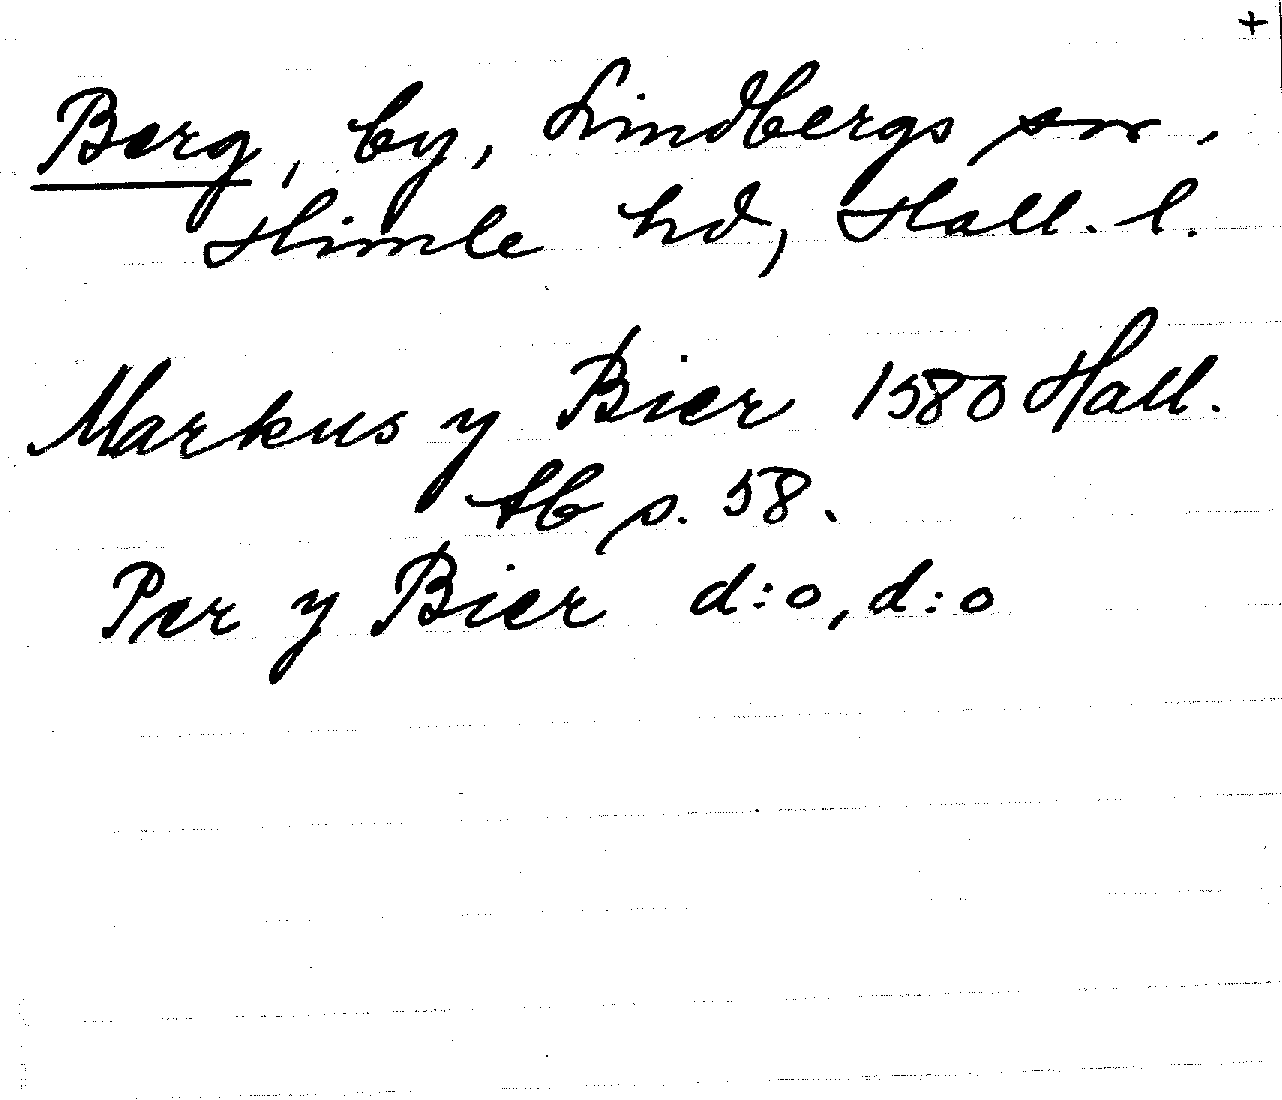 +
Berg, by, Lindbergs sn,
Himle hd, Hall. l.
Markus y Bier 1580 Hall.
Äb s. 58.
Per y Bier d:o, d:o